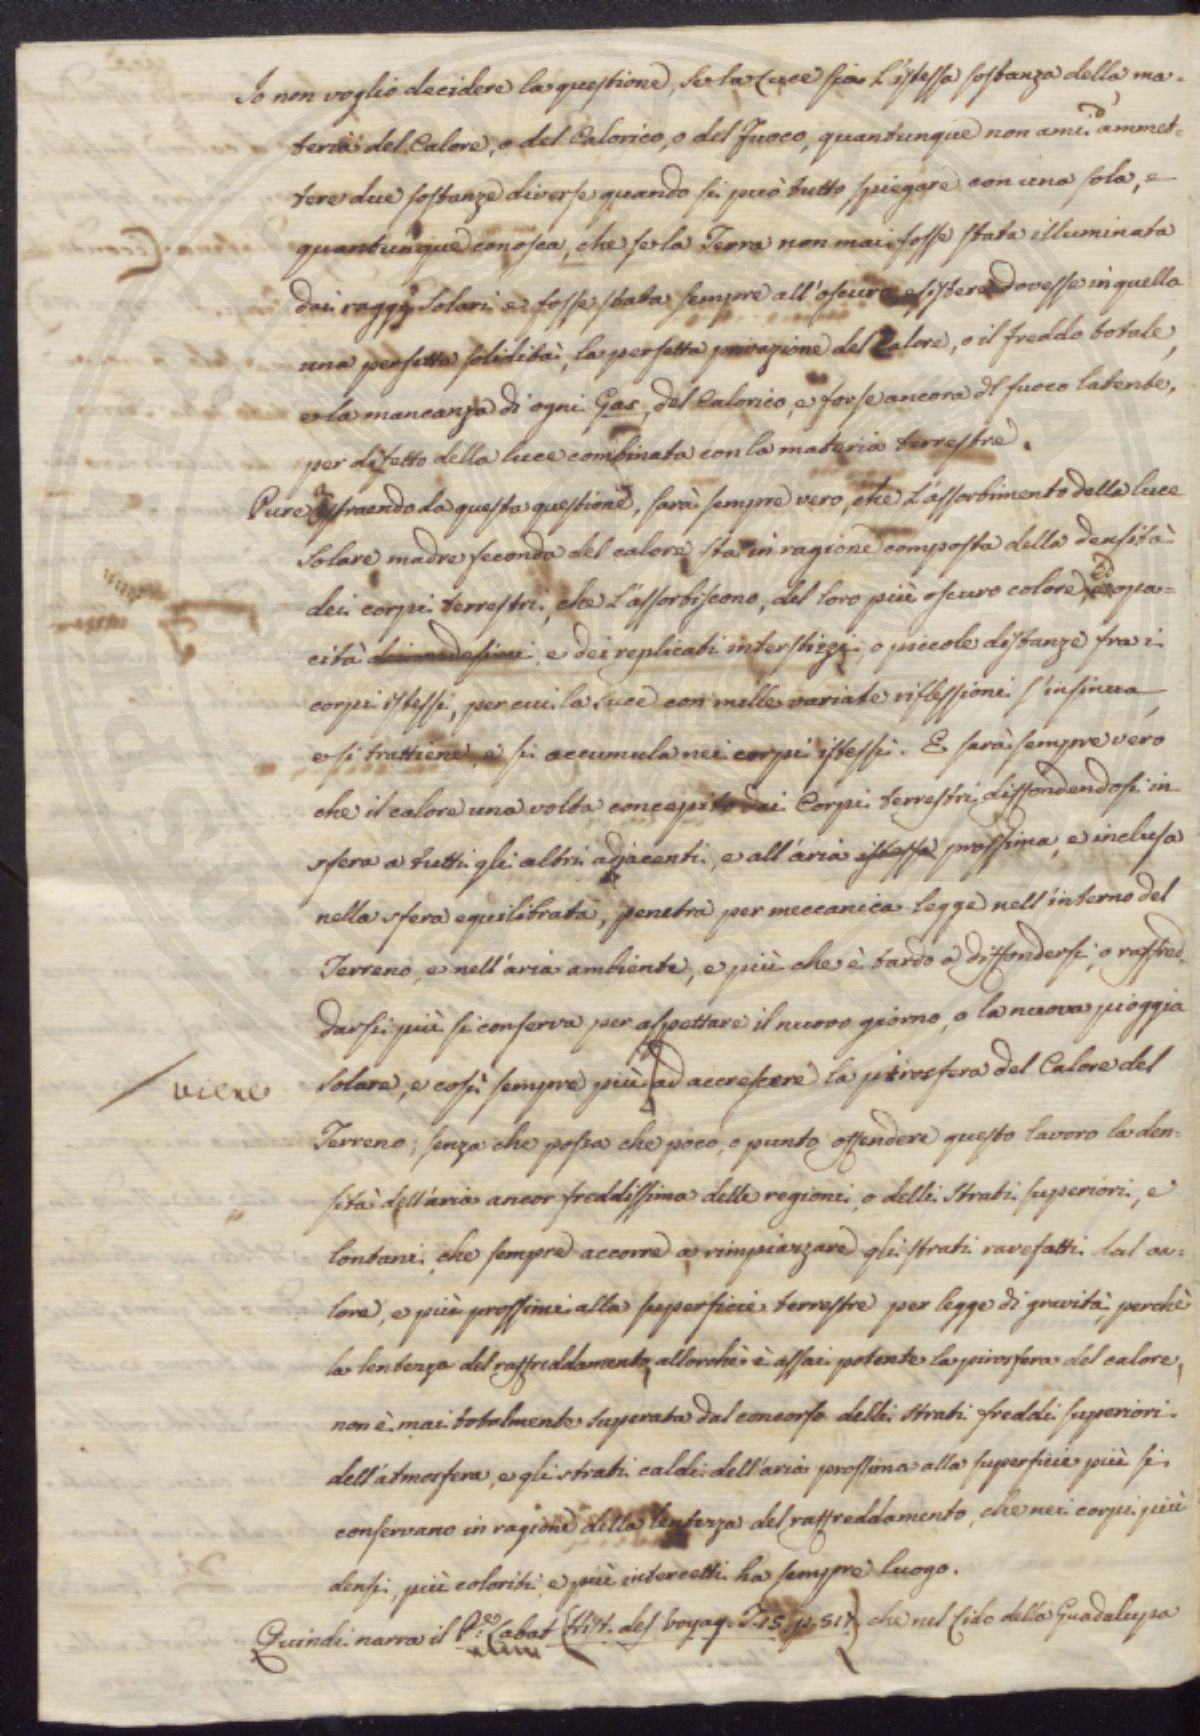 Io non voglio decidere la questione, se la Luce sia L'istessa sostanza della ma-
teria del Calore, o del Calorico, o del Fuoco, quantunque non ami d'ammet-
tere due sostanze diverse quando si può tutto spiegare con una sola, e
quantunque conosca, che se la Terra non mai fosse stata illuminata
dai raggj Solari e fosse stata sempre all'oscuro esistere dovesse in quella
una perfetta solidità, la perfetta privazione del Calore, o il freddo totale,
e la mancanza di ogni Gas, del Calorico, e forse ancora dl fuoco latente,
per difetto della luce combinata con la materia terrestre.
Pure astraendo da questa questione, sarà sempre vero, che L'assorbimento della luce
Solare madre feconda del calore sta in ragione composta della densità
dei corpi terrestri, che L'assorbiscono, del loro più oscuro colore, ed opa=
cità dei medesimi e dei replicati interstizzi, o piccole distanze fra i
corpi istessi, per cui la Luce con mille variate riflessioni s'insinua,
e si trattiene, e si accumula nei corpi istessi. E sarà sempre vero
che il calore una volta concepito dai Corpi terrestri diffondendosi in
sfera a tutti gli altri adjacenti, e all'aria istessa prossima, e inclusa
nella sfera equilibrata, penetra per meccanica legge nell'interno del
Terreno, e nell'aria ambiente, e più che è tardo a diffondersi, o raffred-
darsi più si conserva per aspettare il nuovo giorno, o la nuova pioggia
viene
Solare, e così sempre più ad accrescere la pirosfera del Calore del
Terreno; senza che possa che poco, o punto offendere questo lavoro la den-
sità dell'aria ancor freddissima delle regioni, o delli Strati superiori, e
lontani, che sempre accorre a rimpiazzare gli strati rarefatti dal ca-
lore, e più prossimi alla superficie terrestre per legge di gravità, perchè
la lentezza del raffreddamento, allorchè è assai potente la pirosfera del calore,
non è mai totalmente superata dal concorso delli Strati freddi superiori
dell'atmosfera, e gli strati caldi dell'aria prossima alla superficie più si
conservano in ragione della lentezza del raffreddamento, che nei corpi più
densi, più coloriti, e più intercetti ha sempre luogo.
Quindi narra il P.re Labat (Hist. des voyag. T. 15. p. 517) che nel Lido della Guadalupa